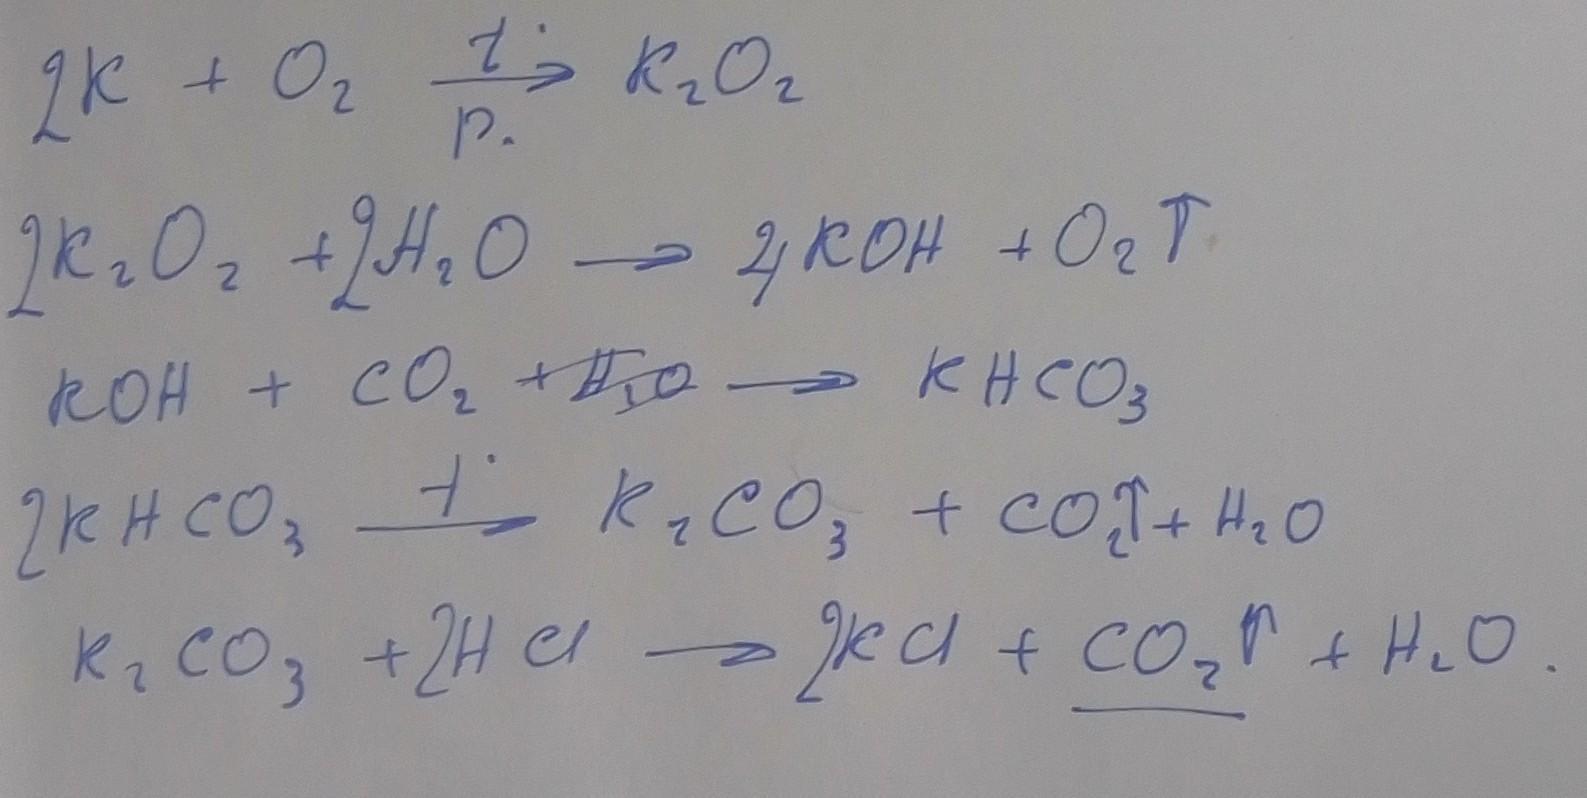 2K + O₂ →(t°, p.) K₂O₂
2K₂O₂ + 2H₂O → 4KOH + O₂↑
KOH + CO₂ + H₂O → KHCO₃
2KHCO₃ →(t°) K₂CO₃ + CO₂↑ + H₂O
K₂CO₃ + 2HCl → 2KCl + CO₂↑ + H₂O.